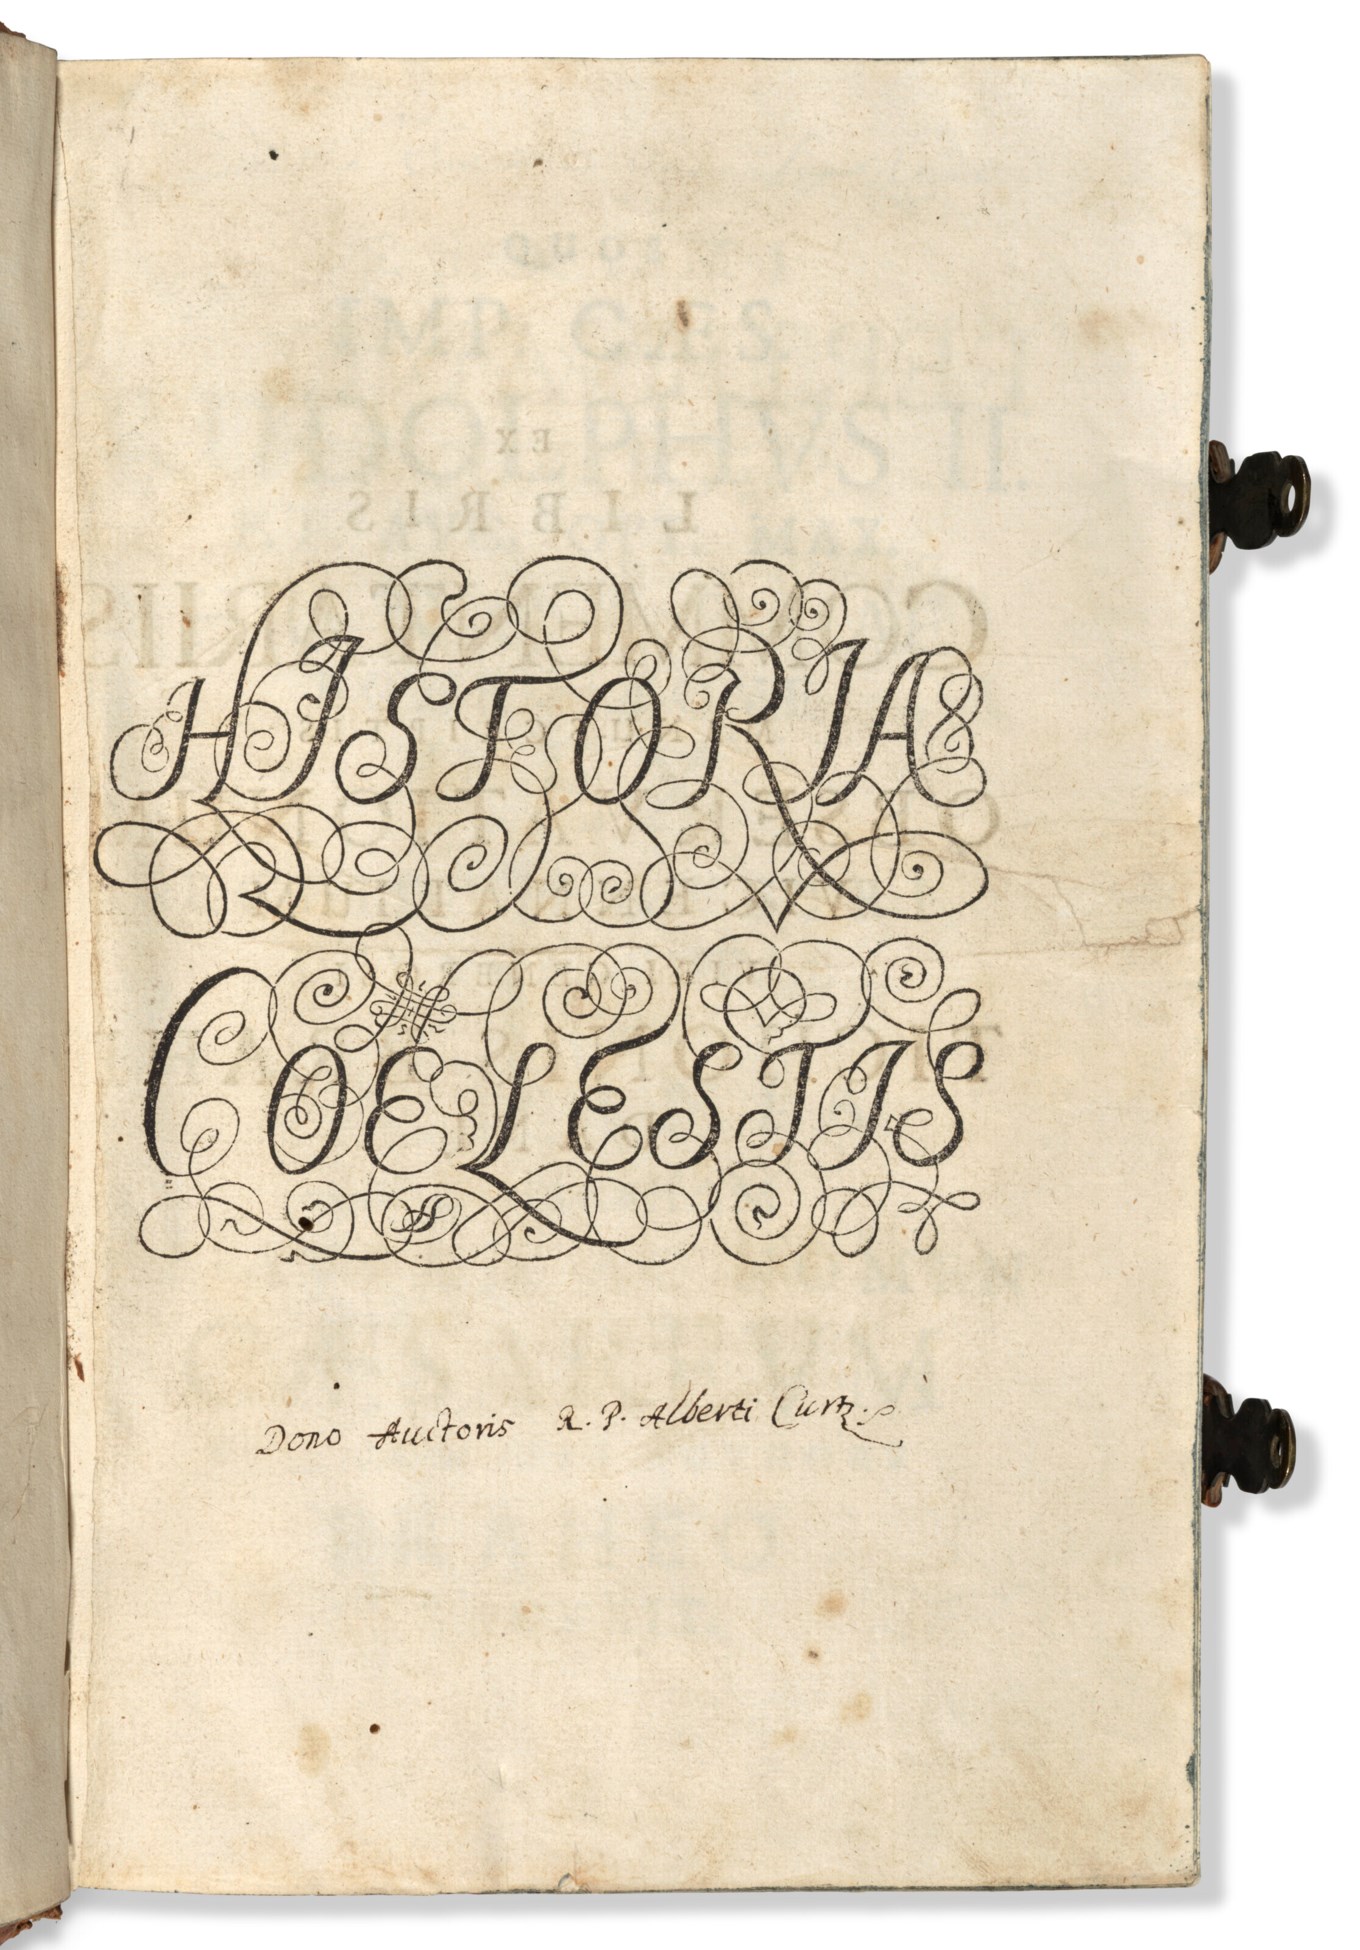 HISTORIA
COELESTIS
Dono Auctoris R. P. Alberti Curtz.